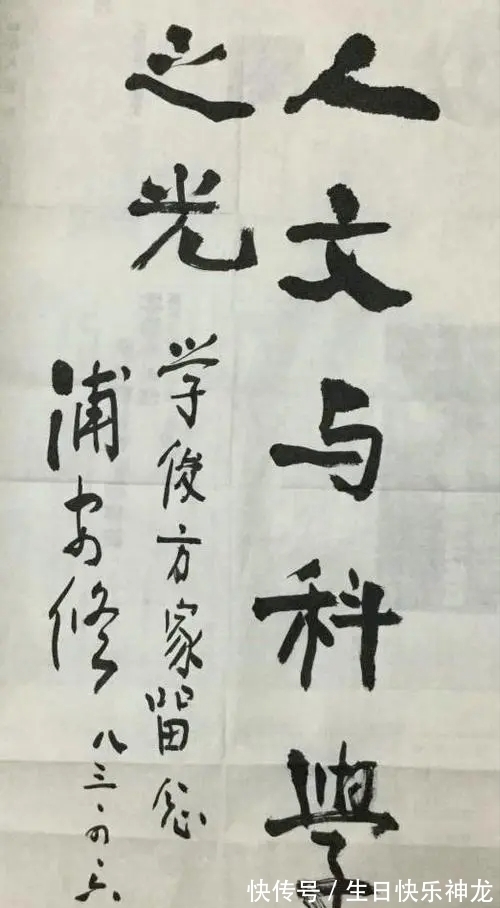 人文与科學
之光
学俊方家留念
浦安修
八三·四·六
快传号／生日快乐神龙